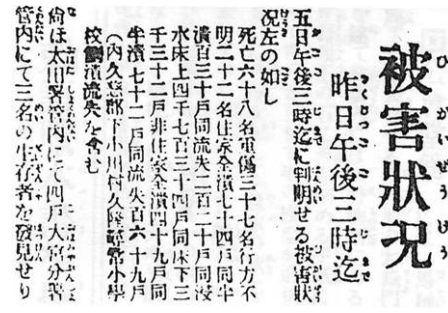 被害狀況
昨日午後三時迄
五日午後三時迄に判明せる被害狀
況左の如し
死亡六十八名重傷三十七名行方不
明二十二名住家全潰七十四戸同半
潰百三十戸同流失二百二十戸同浸
水床上四千七百三十四戸同床下三
千三十二戸非住家全潰四十九戸同
半潰七十二戸同流失百六十九戸
(内久慈郡下小川村久隆尋常小學
校倒潰流失を含む
尙ほ太田署管内にて四戸大宮分署
管内にて三名の生存者を發見せり